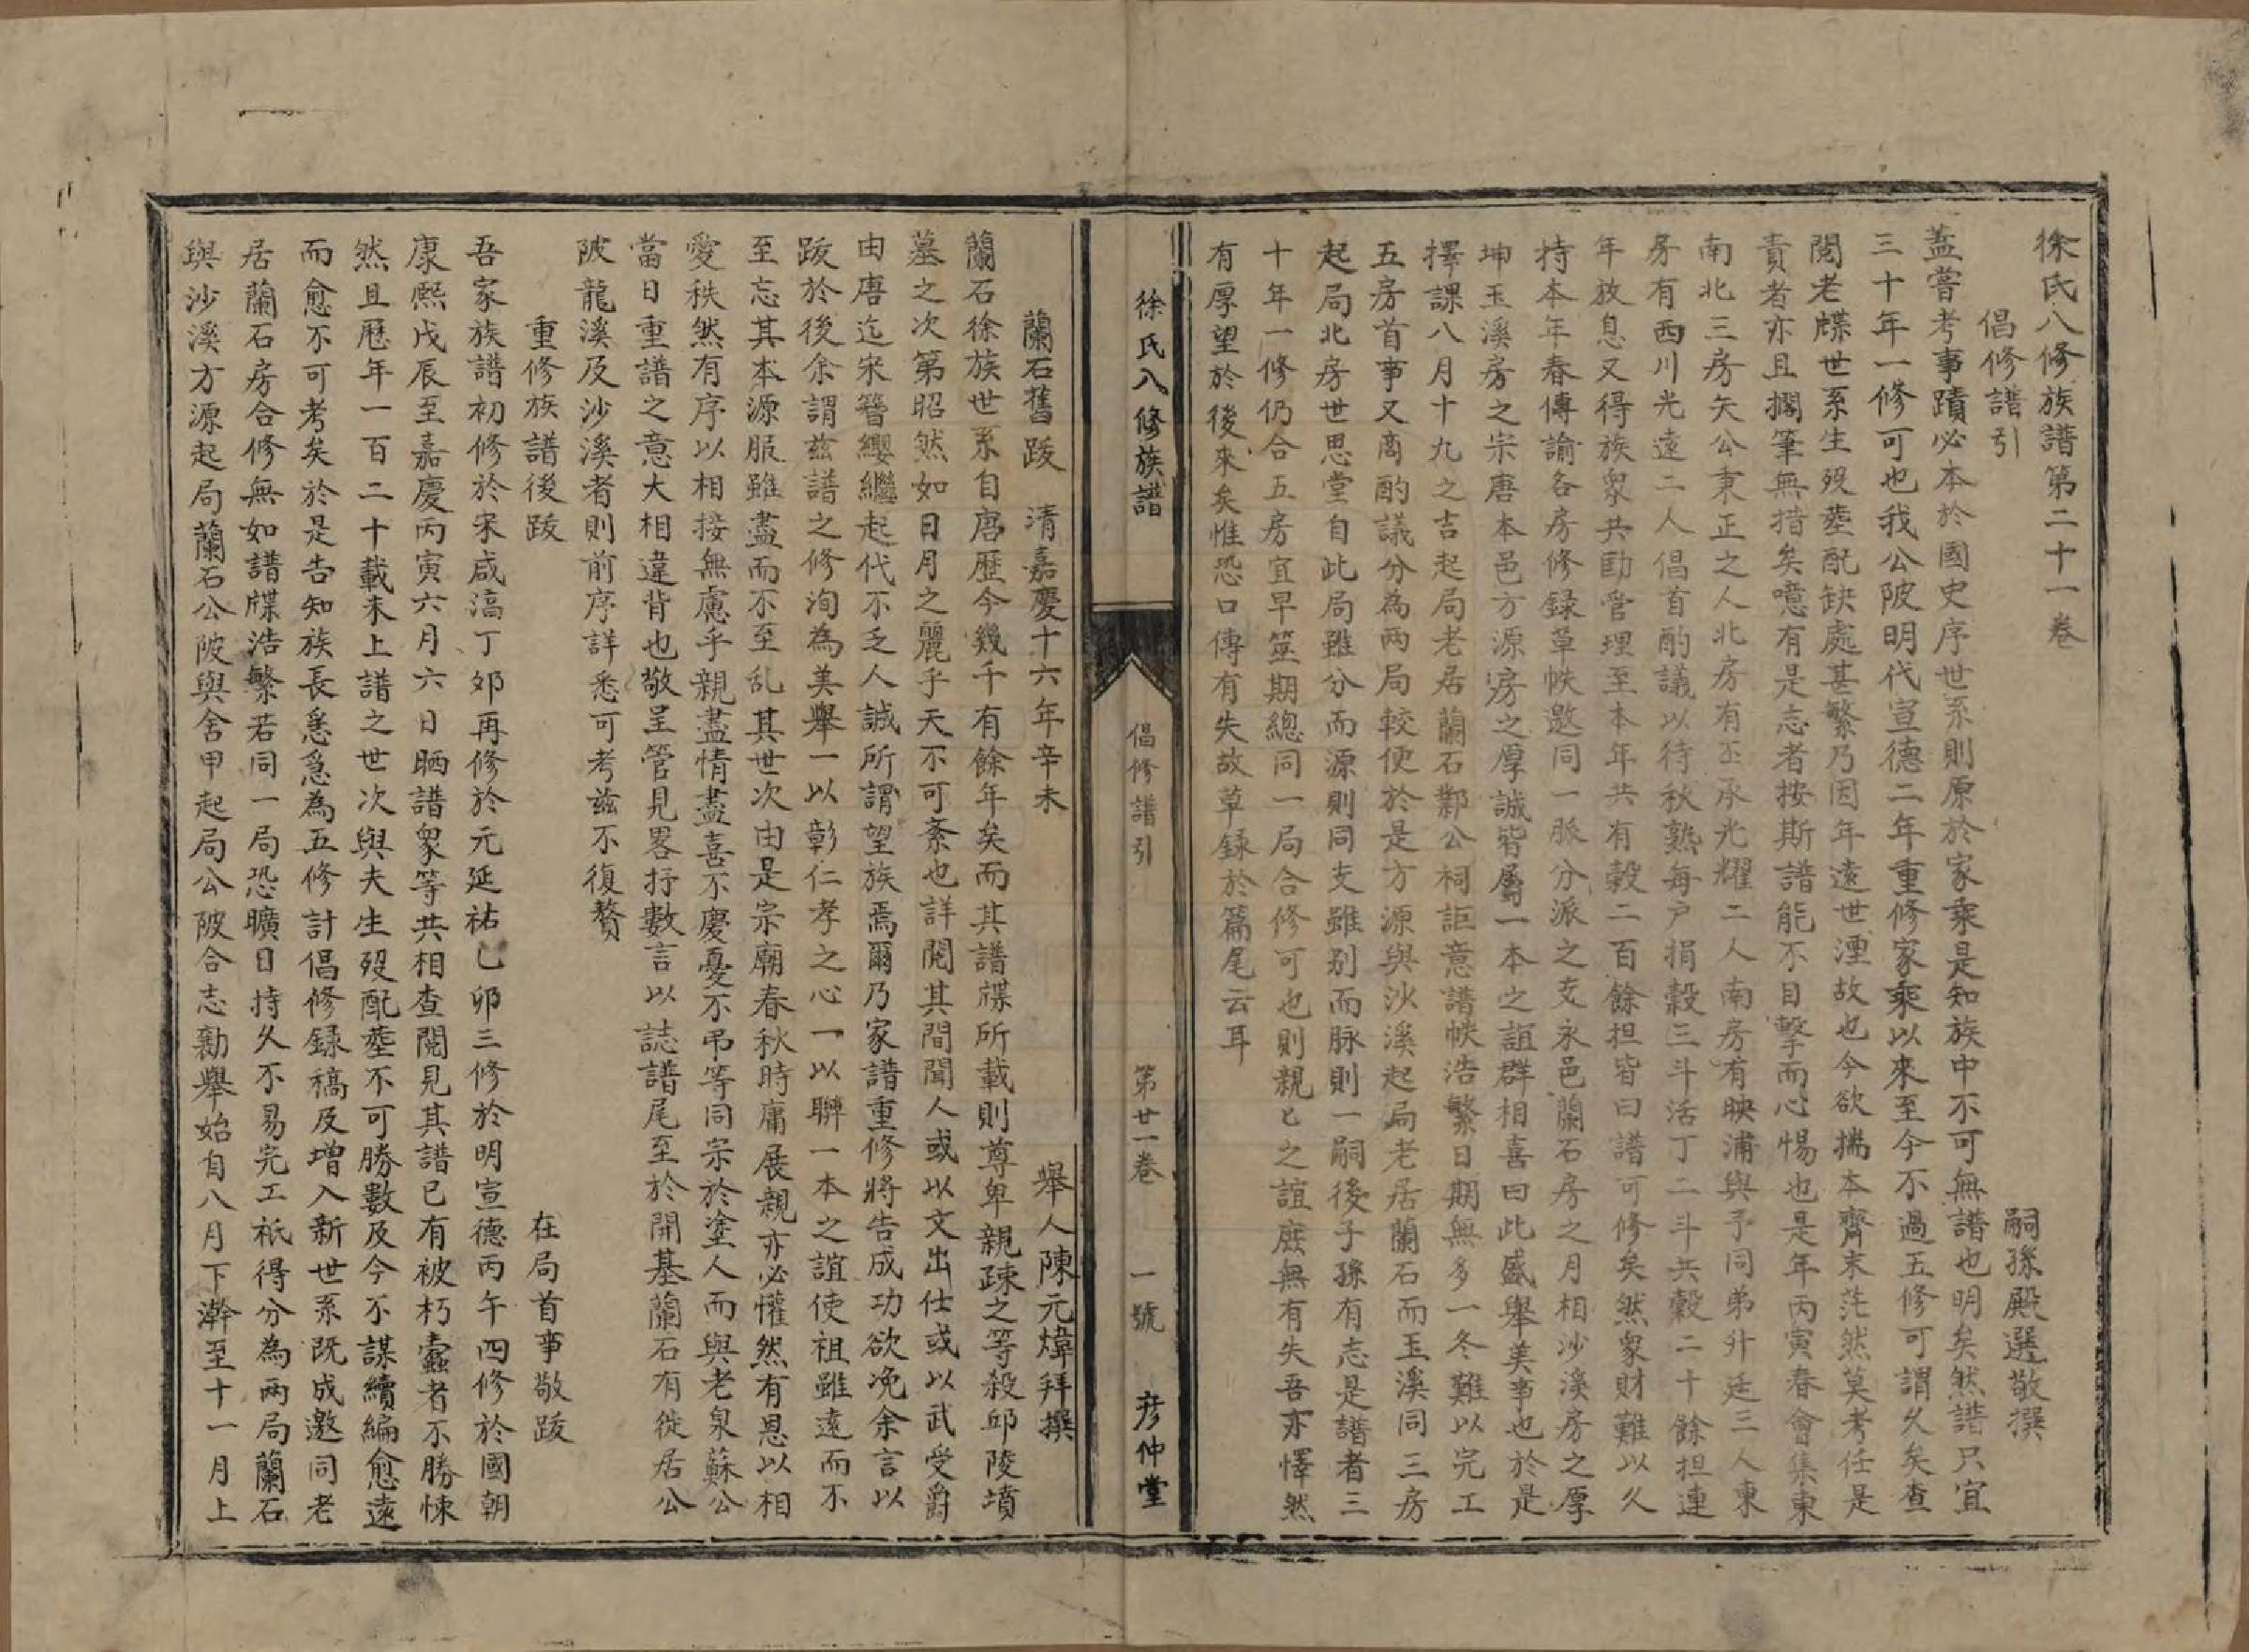 徐氏八修族譜第二十一卷
倡修譜引
嗣孫殿選敬撰
蓋嘗考事蹟必本於國史序世系則原於家乘是知族中不可無譜也明矣然譜只宜
三十年一修可也我公陂明代宣德二年重修家乘以來至今不過五修可謂久矣查
閱老牒世系生歿塟配缺處甚繁乃因年遠世湮故也今欲揣本齊末茫然莫考任是
責者亦且擱筆無措矣噫有是志者按斯譜能不目擊而心惕也是年丙寅春會集東
南北三房矢公秉正之人北房有丕承光耀二人南房有映浦與予同弟升廷三人東
房有西川光遠二人倡首酌議以待秋熟每户捐穀三斗活丁二斗共穀二十餘担連
年放息又得族衆共勖管理至本年共有穀二百餘担皆曰譜可修矣然衆財難以久
持本年春傳諭各房修録草帙邀同一脈分派之支永邑蘭石房之月相沙溪房之厚
坤玉溪房之宗唐本邑方源房之厚誠皆屬一本之誼群相喜曰此盛舉美事也於是
擇課八月十九之吉起局老居蘭石鄴公祠詎意譜帙浩繁日期無多一冬難以完工
五房首事又商酌議分為两局較便於是方源與沙溪起局老居蘭石而玉溪同三房
起局北房世思堂自此局雖分而源則同支雖别而脉則一嗣後子孫有志是譜者三
十年一修仍合五房宜早筮期總同一局合修可也則親匕之誼庻無有失吾亦懌然
有厚望於後來矣惟恐口傳有失故草録於篇尾云耳
徐氏八修族譜
倡修譜引
第廿一卷
一號
彦仲堂
蘭石舊跋　清嘉慶十六年辛未
舉人陳元煒拜撰
蘭石徐族世系自唐歷今幾千有餘年矣而其譜牒所載則尊卑親疎之等殺邱陵墳
墓之次第昭然如日月之麗乎天不可紊也詳閱其間聞人或以文出仕或以武受爵
由唐迄宋簪纓繼起代不乏人誠所謂望族焉爾乃家譜重修將告成功欲凂余言以
跋於後余謂兹譜之修洵為美舉一以彰仁孝之心一以聯一本之誼使祖雖遠而不
至忘其本源服雖盡而不至乱其世次由是宗廟春秋時庸展親亦必懽然有恩以相
愛秩然有序以相接無慮乎親盡情盡喜不慶憂不弔等同宗於塗人而與老泉蘇公
當日重譜之意大相違背也敬呈管見畧抒數言以誌譜尾至於開基蘭石有徙居公
陂龍溪及沙溪者則前序詳悉可考兹不復贅
重修族譜後跋
在局首事敬跋
吾家族譜初修於宋咸湻丁夘再修於元延祐己卯三修於明宣德丙午四修於國朝
康熙戊辰至嘉慶丙寅六月六日晒譜衆等共相查閱見其譜已有被朽蠹者不勝悚
然且歷年一百二十載未上譜之世次與夫生歿配塟不可勝數及今不謀續編愈遠
而愈不可考矣於是告知族長急急為五修計倡修録稿及增入新世系既成邀同老
居蘭石房合修無如譜牒浩繁若同一局恐曠日持久不易完工祇得分為两局蘭石
與沙溪方源起局蘭石公陂與舍甲起局公陂合志勷舉始自八月下澣至十一月上